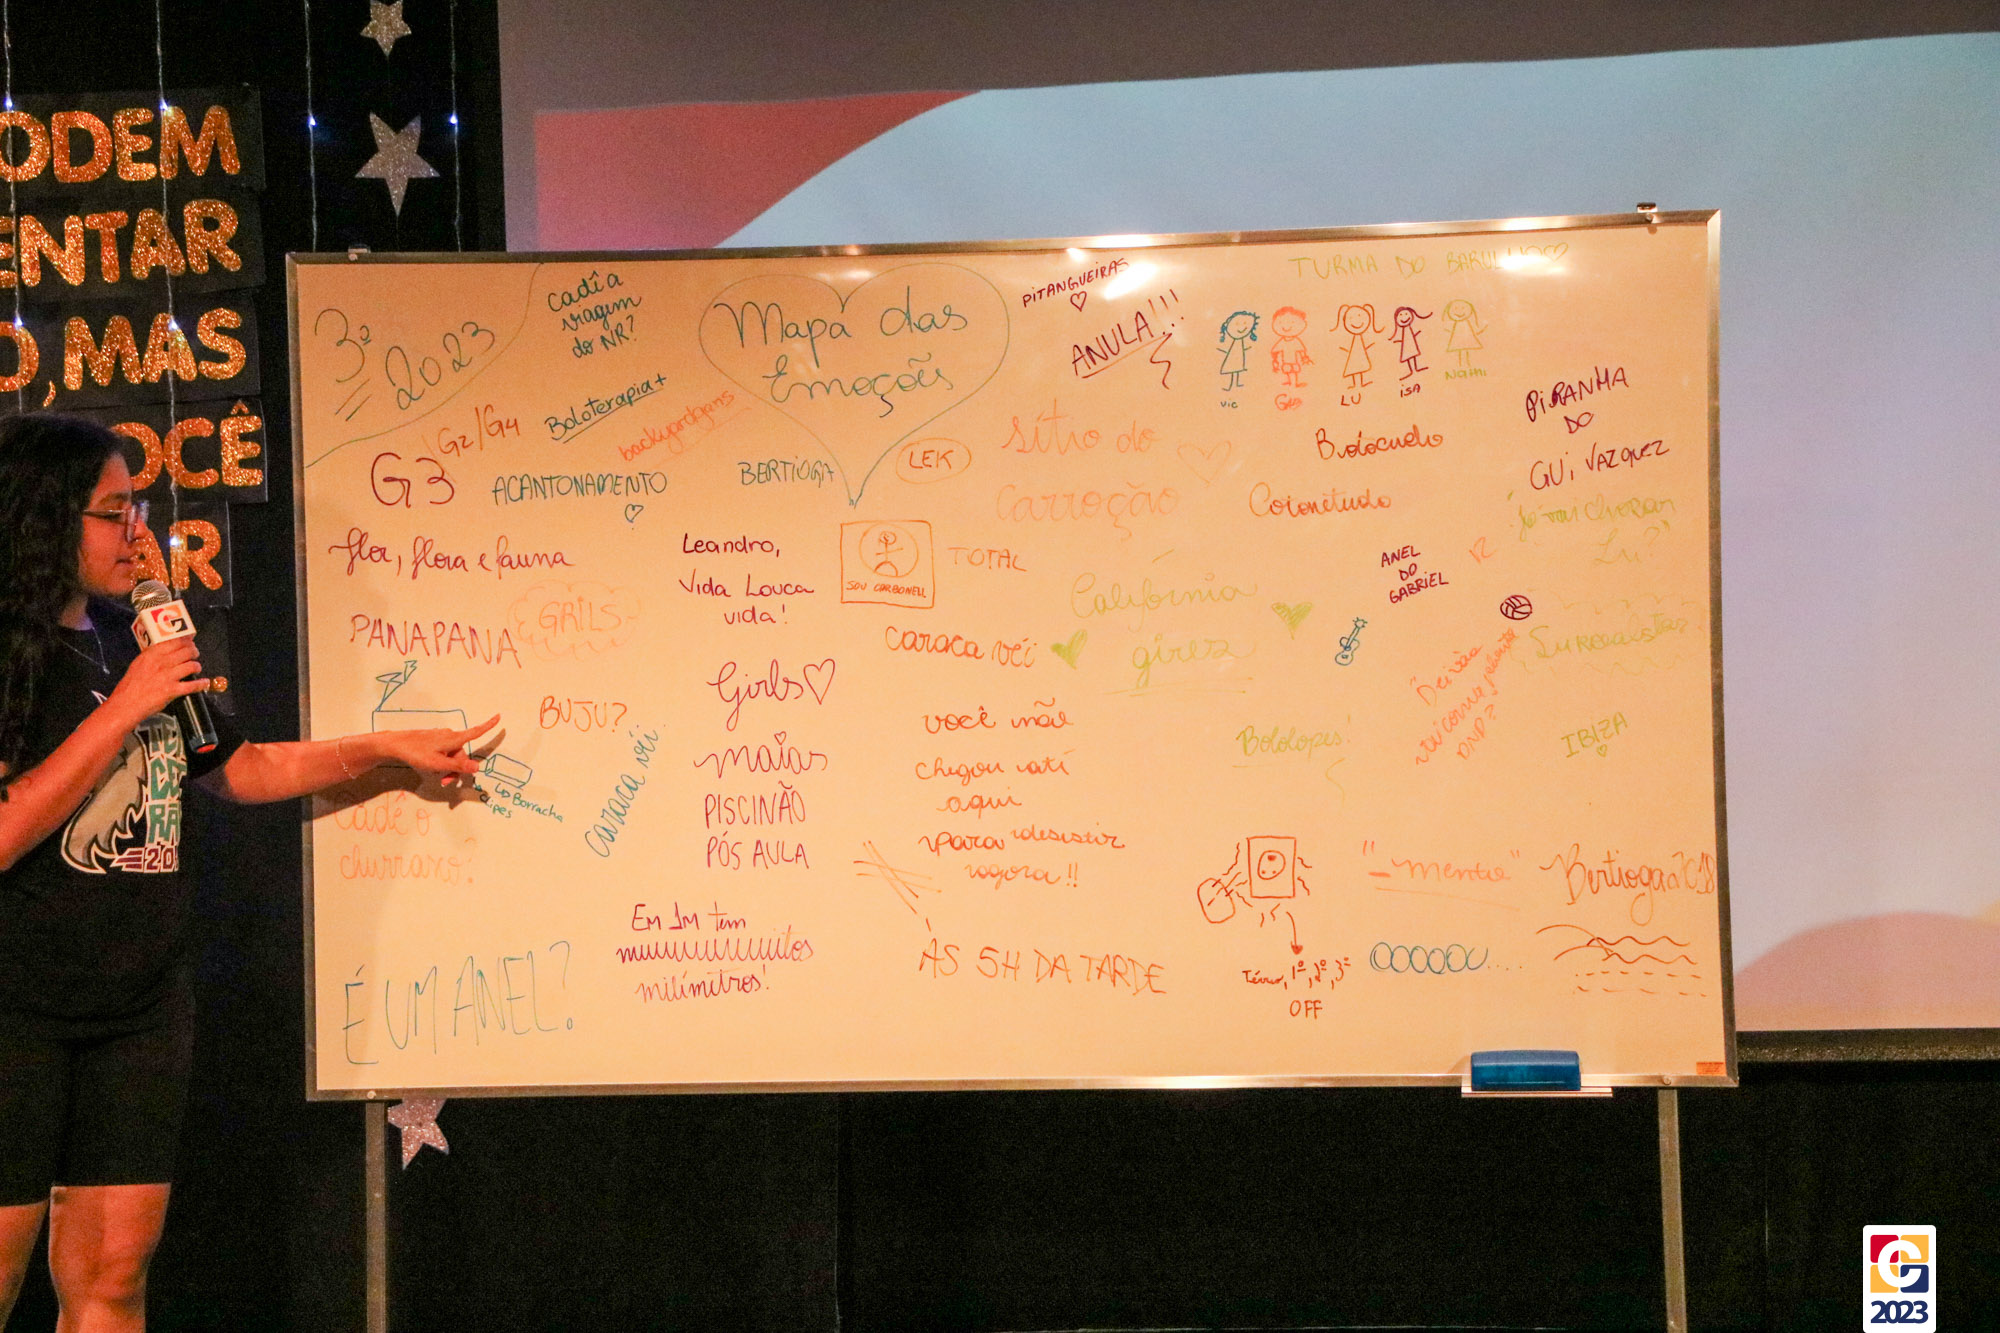 ODEM
ENTAR
O, MAS
OCÊ
AR
3º
2023
Cadê a
viagem
do NR?
Mapa das
Emoções
PITANGUEIRAS
ANULA!!!
TURMA DO BARULHO
Vic
LU
ISA
G2/G4
Boloterapia+
backyardigans
G3
ACANTONAMENTO
BERTIOGA
LEK
Sítio do
Carroção
PIRANHA
DO
GUI VAZQUEZ
flor, flora e fauna
GRILS
PANAPANA
Leandro,
Vida Louca
vida!
SOU CARBONELL
TOTAL
caraca véi
Califórnia
girez
ANEL
DO
GABRIEL
Surrealistas
BUJU?
caraca véi
Girls
maias
PISCINÃO
PÓS AULA
você não
chegou até
aqui
para desistir
agora!!
Bololopes!
IBIZA
Borracha
clipes
Cadê o
churrasco?
É UM ANEL?
EM 1M tem
muuuuuuuuuitos
milímetros!
ÀS 5H DA TARDE
Térreo, 1º, 2º, 3º
OFF
"-mente"
OOOOOU....
Bertioga 2018
2023